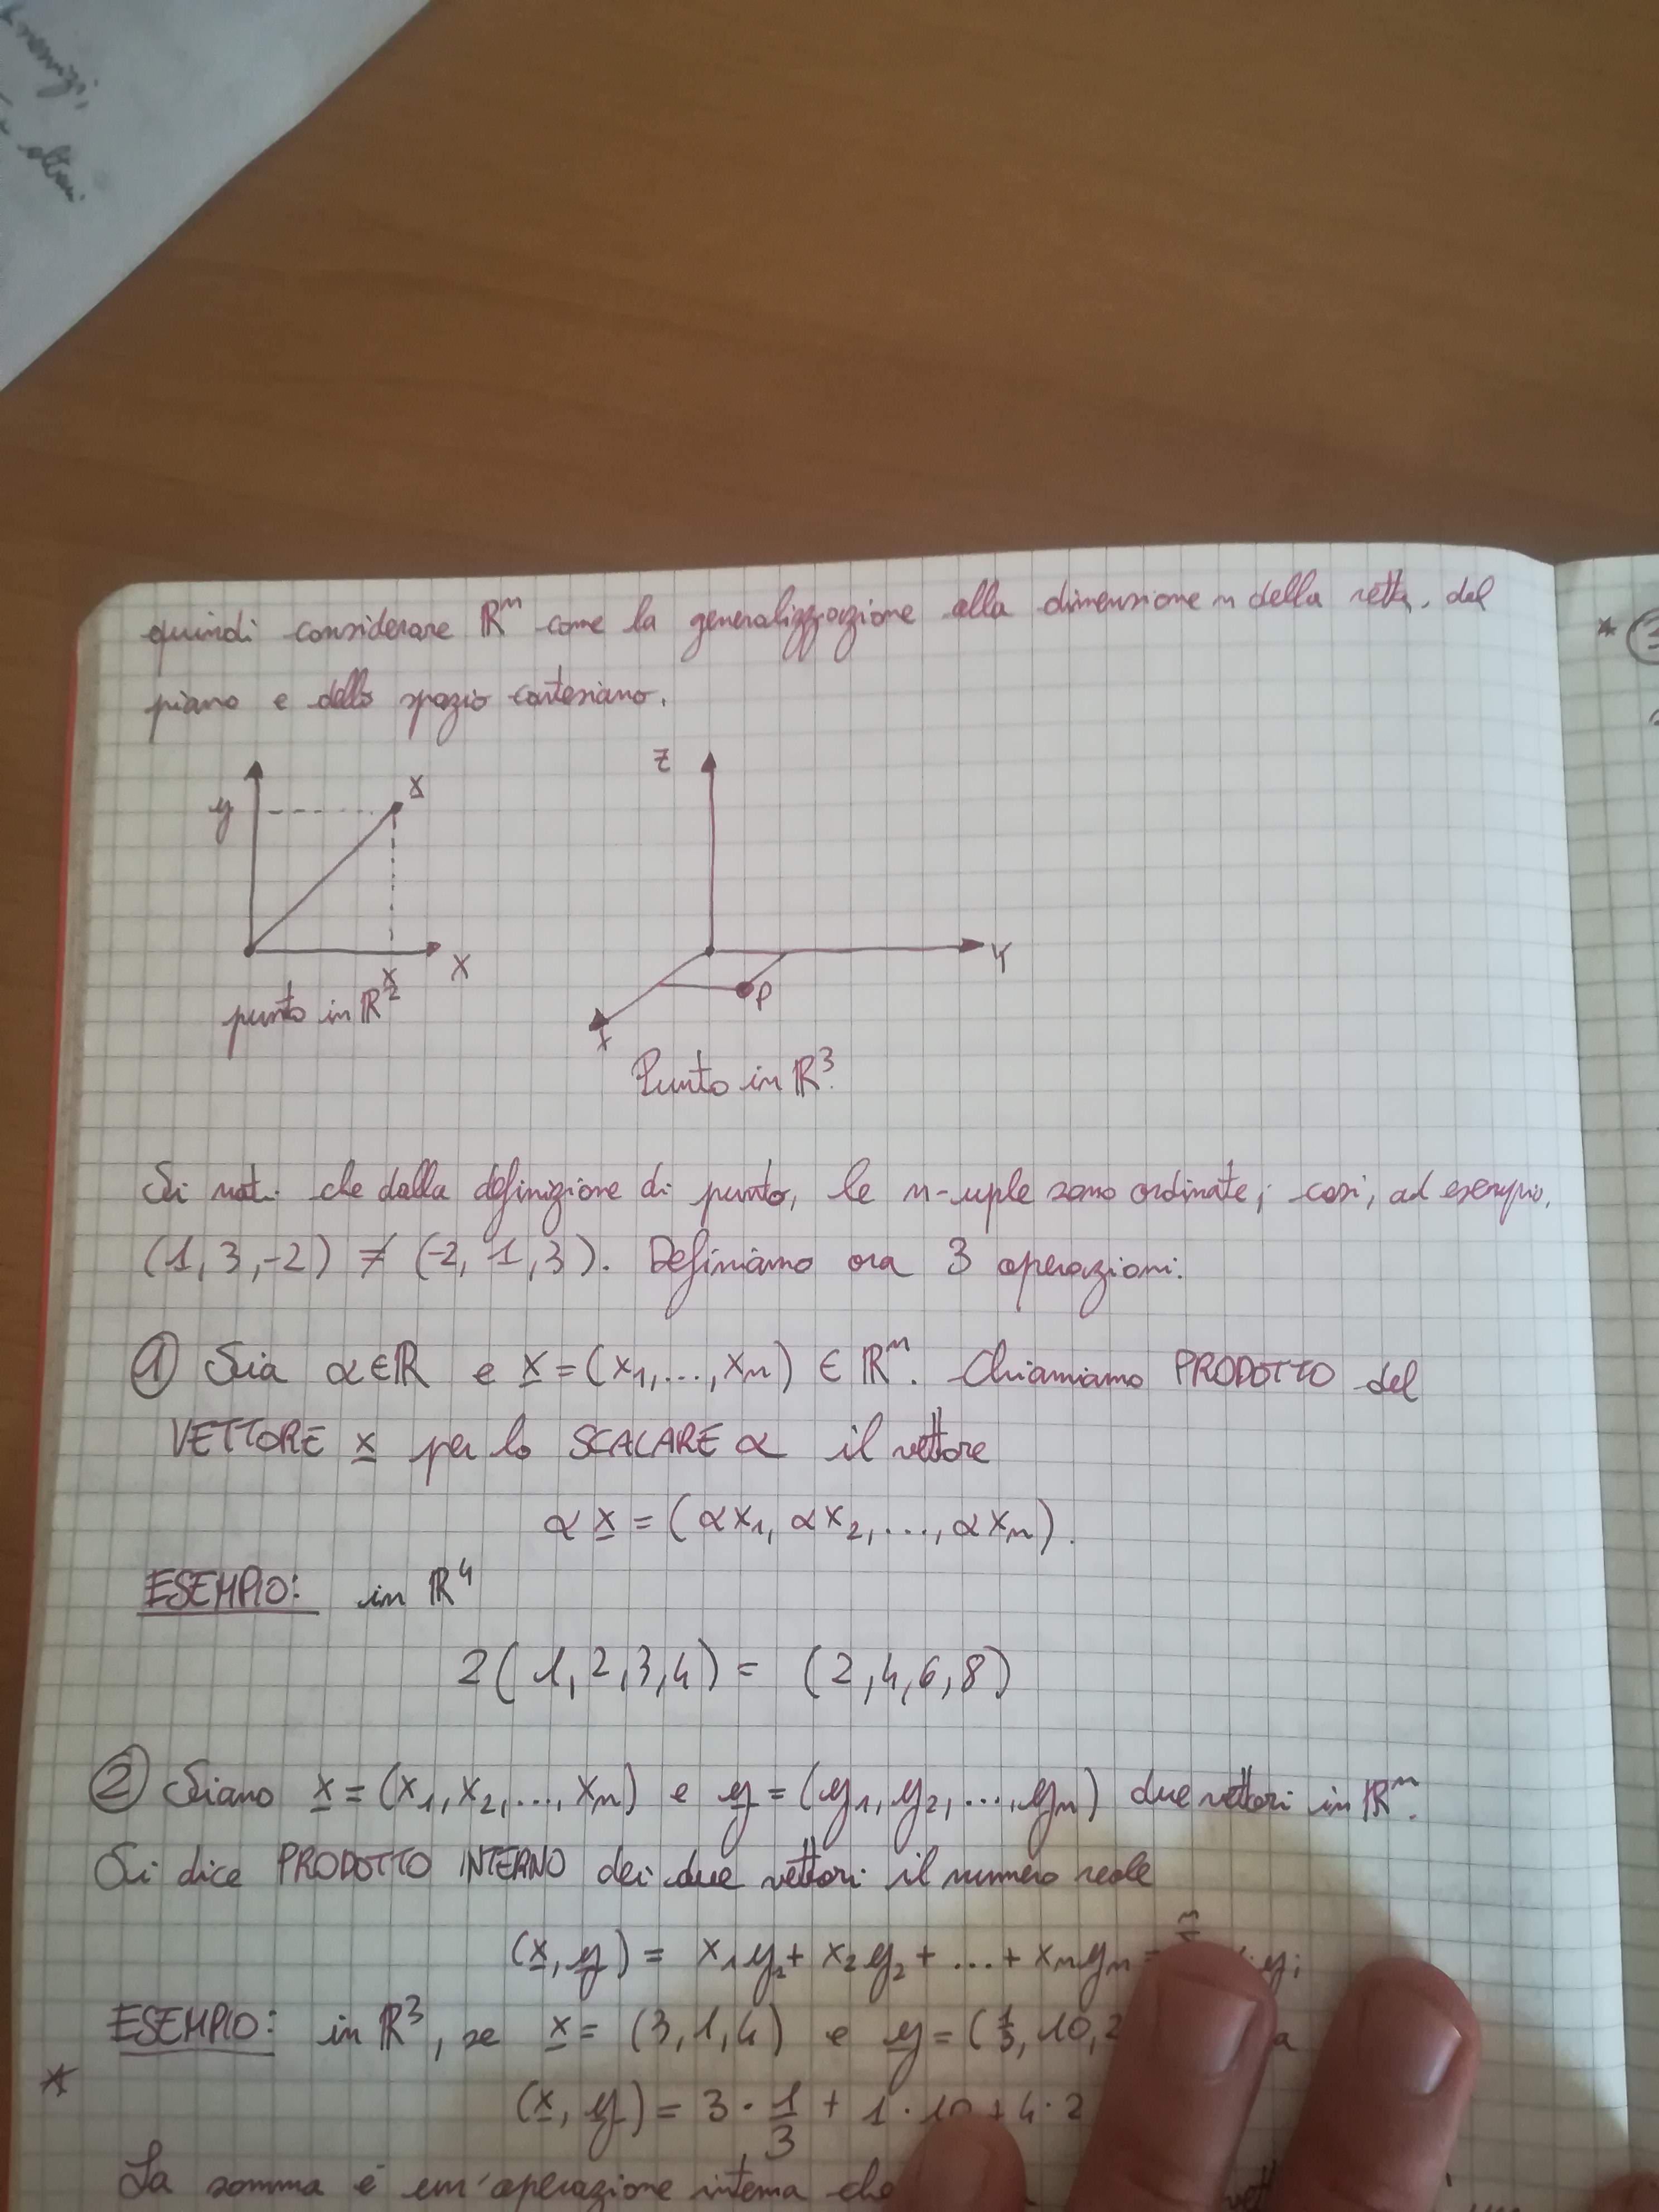 quindi considerare ℝⁿ come la generalizzazione alla dimensione n della retta, del
piano e dello spazio cartesiano.
y
x
x
x
punto in ℝ²
Z
Y
x
P
Punto in ℝ³.
Si not. che dalla definizione di punto, le n-uple sono ordinate; così, ad esempio,
(1, 3, -2) ≠ (-2, 1, 3). Definiamo ora 3 operazioni:
① Sia α∈ℝ e x = (x₁, ..., xₙ) ∈ ℝⁿ. Chiamiamo PRODOTTO del
VETTORE x per lo SCALARE α il vettore
α x = (αx₁, αx₂, ..., αxₙ).
ESEMPIO: in ℝ⁴
2(1,2,3,4) = (2,4,6,8)
② Siano x = (x₁, x₂, ..., xₙ) e y = (y₁, y₂, ..., yₙ) due vettori in ℝⁿ.
Si dice PRODOTTO INTERNO dei due vettori il numero reale
(x, y) = x₁y₁ + x₂y₂ + ... + xₙyₙ = yᵢ
ESEMPIO: in ℝ³, se x = (3,1,4) e y = (1/3, 10, 2
(x, y) = 3 · 1/3 + 1 · 10 + 4 · 2
La somma è un'operazione interna che